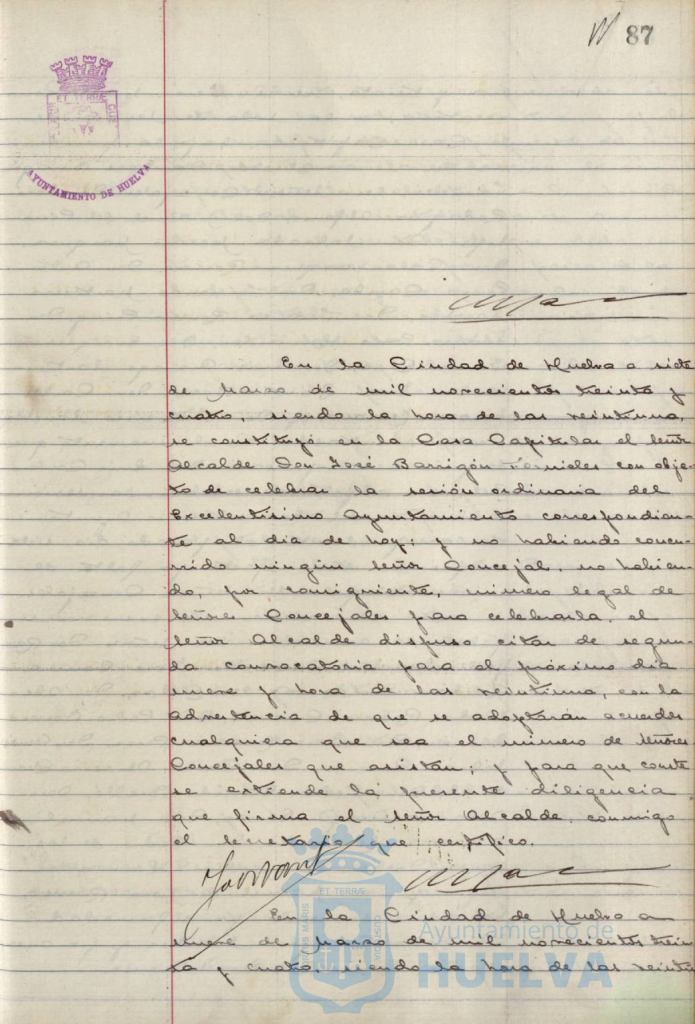 87
ET TERRÆ
AYUNTAMIENTO DE HUELVA
En la Ciudad de Huelva a siete
de Marzo de mil novecientos treinta y
cuatro, siendo la hora de las veintiuna,
se constituyó en la Casa Capitular el señor
Alcalde Don José Barrigón Fornieles con obje-
to de celebrar la sesión ordinaria del
Excelentísimo Ayuntamiento correspondien-
te al día de hoy; y no habiendo concu-
rrido ningún señor Concejal, no habien-
do, por consiguiente, número legal de
señores Concejales para celebrarla, el
señor Alcalde dispuso citar de segun-
da convocatoria para el próximo día
nueve y hora de las veintiuna, con la
advertencia de que se adoptarán acuerdos
cualquiera que sea el número de señores
Concejales que asistan; y para que conste
se extiende la presente diligencia
que firma el señor Alcalde, conmigo
el Secretario que certifico.
En la Ciudad de Huelva a
nueve de Marzo de mil novecientos trein-
ta y cuatro, siendo la hora de las veinti-
ET TERRÆ
PORTUS MARIS
CUSTODIA
Ayuntamiento de
HUELVA